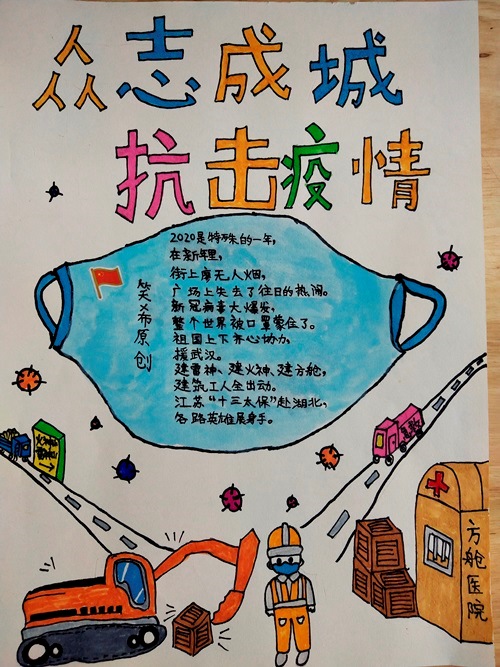 众志成城
抗击疫情
2020是特殊的一年,
在新年里,
街上摩无人烟,
广场上失去了往日的热闹。
新冠病毒大爆发,
整个世界被口罩蒙住了。
祖国上下齐心协力,
援武汉。
建雷神、建火神、建方舱,
建筑工人全出动。
江苏“十三太保”赴湖北,
各路英雄展身手。
笑希原创
方舱医院